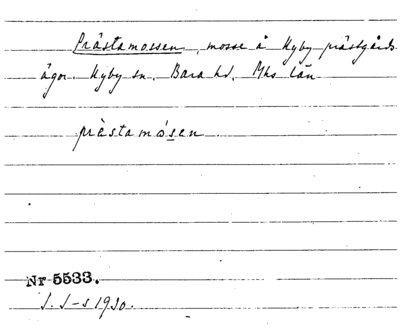 Prästamossen, mosse å Hyby prästgårds
ägor. Hyby sn. Bara hd. Mhs län
prästamósen
Nr 5533.
1930.